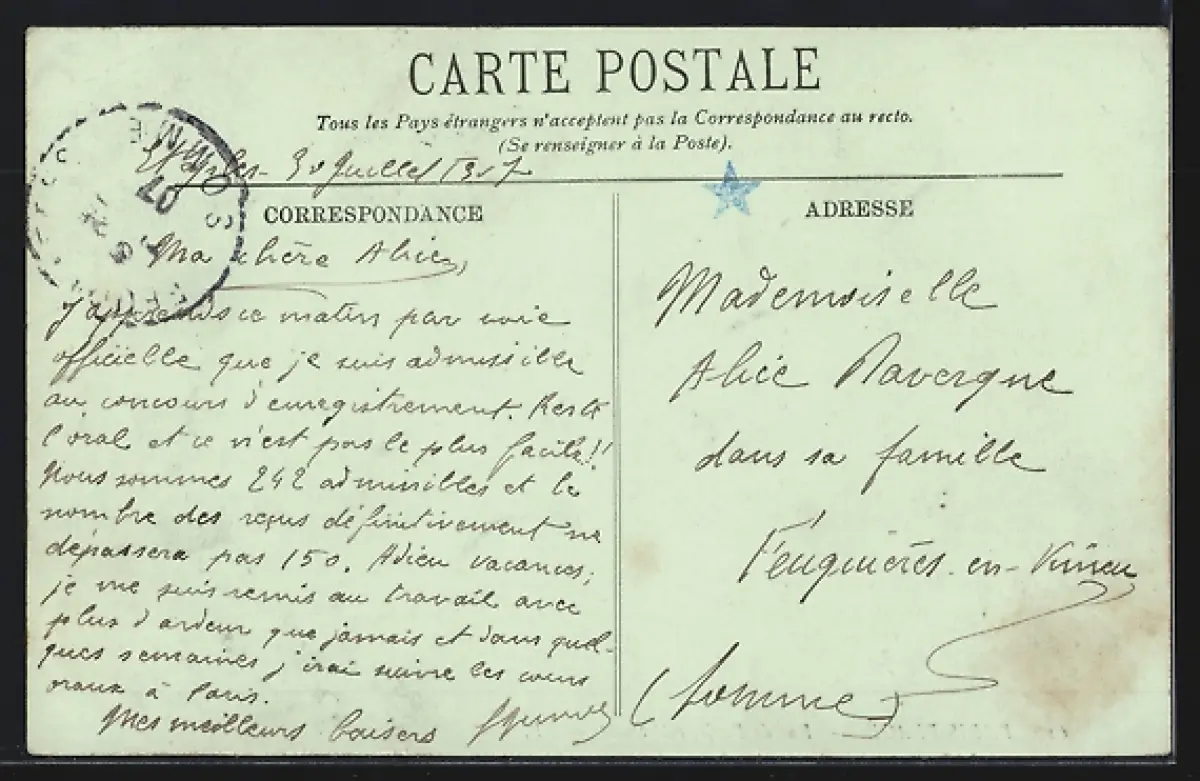 CARTE POSTALE
Tous les Pays étrangers n'acceptent pas la Correspondance au recto.
(Se renseigner à la Poste).
30 Juillet 1907
CORRESPONDANCE
Ma chère Alice,
J'apprends ce matin par voie
officielle que je suis admissible
au concours d'enregistrement. Reste
l'oral et ce n'est pas le plus facile!!
Nous sommes 242 admissibles et le
nombre des reçus définitivement ne
dépassera pas 150. Adieu vacances;
je me suis remis au travail avec
plus d'ardeur que jamais et dans quel-
ques semaines j'irai suivre les cours
oraux à Paris.
Mes meilleurs baisers
ADRESSE
Mademoiselle
Alice Ravergne
dans sa famille
Feuquières-en-Vimeu
(Somme)